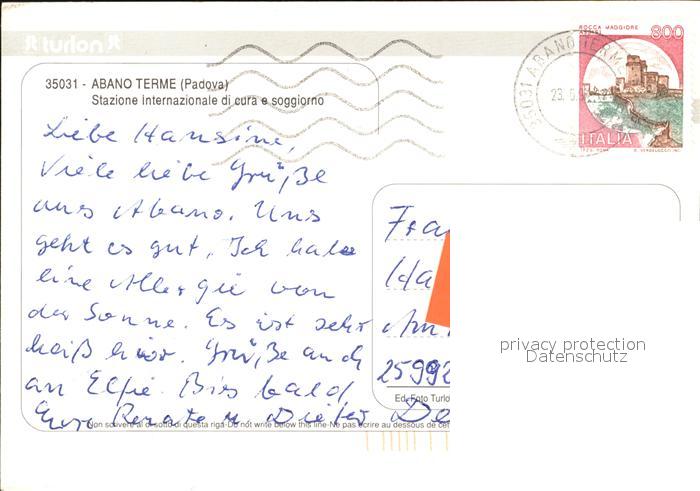 turlon
35031 - ABANO TERME (Padova)
Stazione Internazionale di cura e soggiorno
Liebe Hansine,
Viele liebe Grüße
aus Abano. Uns
geht es gut. Ich habe
eine Allergie von
der Sonne. Es ist sehr
heiß hier. Grüße auch
an Elfie. Bis bald,
Eure Renate u Dieter
Non scrivere al di sotto di questa riga-Do not write below this line-Ne pas écrire au dessous de cet
ROCCA MAGGIORE
800
ITALIA
35031 ABANO TERM
Fra
Ha
Am
25992
Ed. Foto Turlo
De
privacy protection
Datenschutz